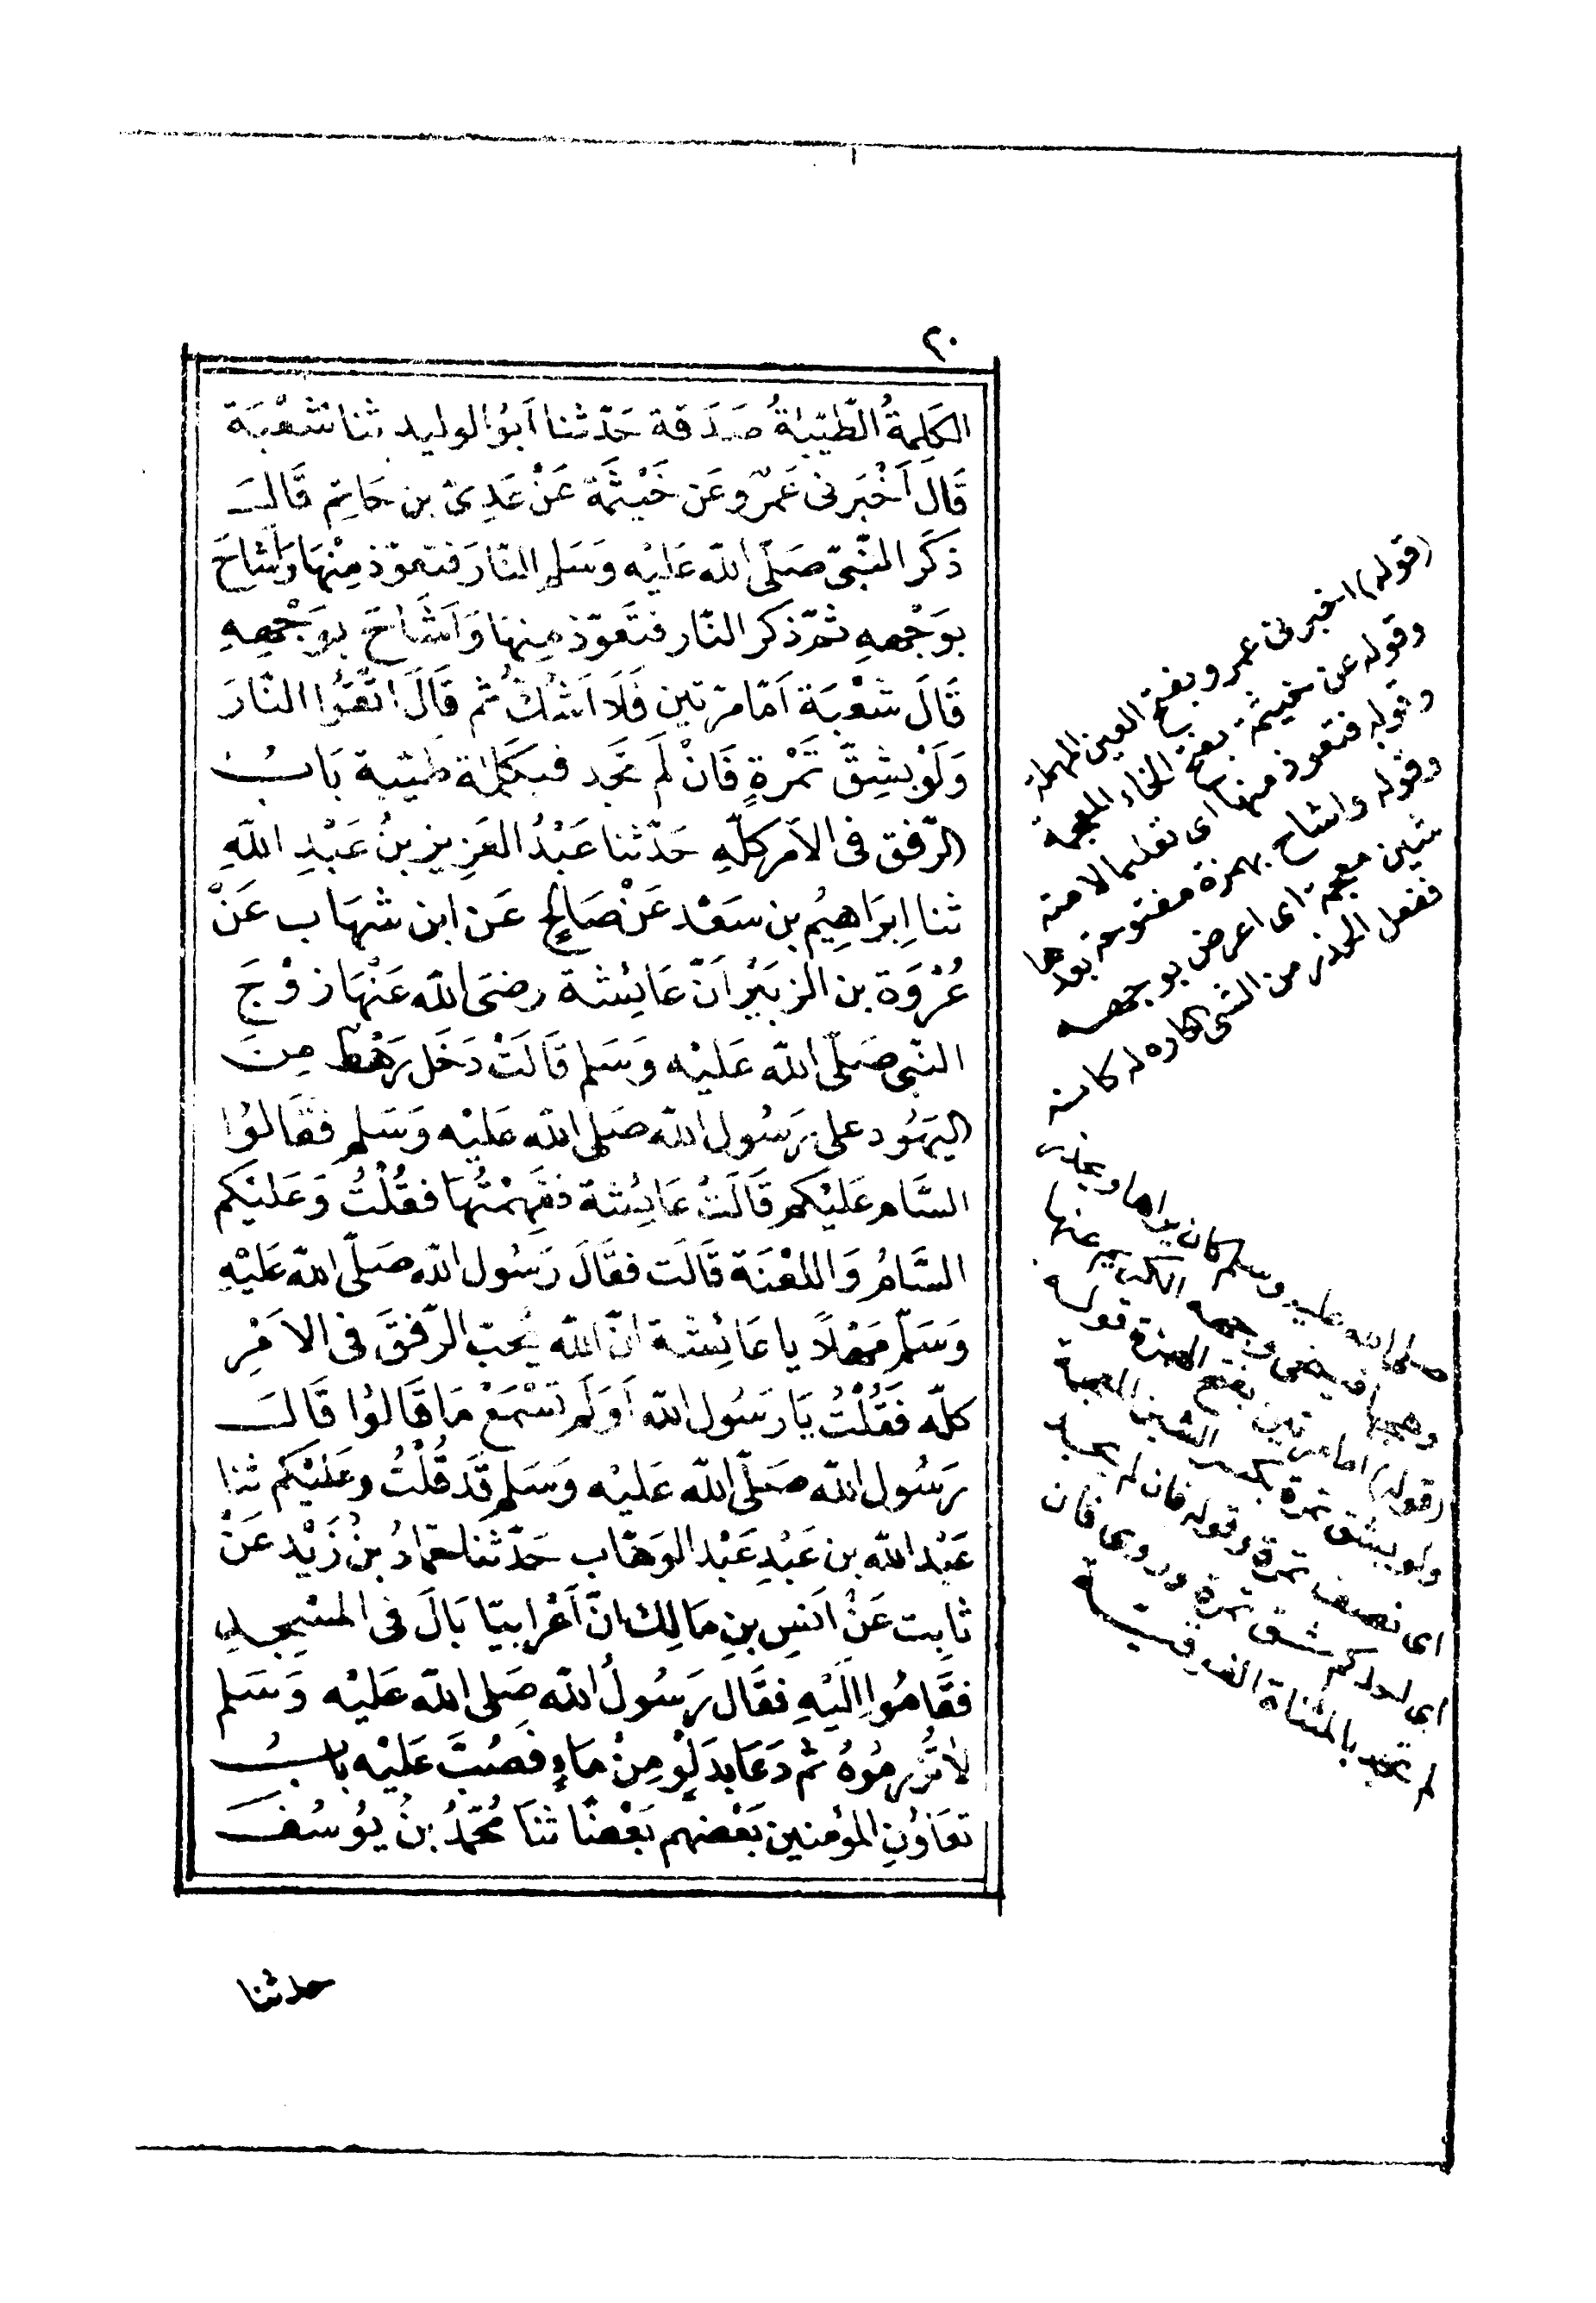 ٢٠
الكَلِمةُ الطّيّبةُ صَدَقة حَدّثنا اَبوُ الوليد ثنا شعْبَة
قَالَ اَخْبَرنى عَمْرٌو عَن خَيْثَمَة عَنْ عَدِىّ بن حَاتِم قَالَ
ذكَر النّبىّ صَلّى الله عَليْه وَسَلم النّارَ فتعوّذ مِنْهَا وَاَشَاحَ
بوَجْههِ ثمّ ذكَر النّار فتَعَوّذ مِنهَا وَاَشَاحَ بوَجْههِ
قَالَ شعْبَة اَمّا مرّتين فَلَا اَشُكُّ ثم قَالَ اتّقُوا النّارَ
وَلَوْ بشِقّ تَمْرَةٍ فَانْ لَم تجَد فبكَلمَة طيّبة بَابُ
الرّفق فى الاَمر كلّهِ حَدّثنا عَبْدُ العَزيز بنُ عَبْدِ اللهِ
ثنا اِبرَاهِيُم بن سَعْد عَنْ صَالحٍ عَن ابن شهَاب عَنْ
عُرْوَة بن الزبَيْر اَنّ عَائِشة رضىَ الله عَنْهَا زوْجَ
النّبى صَلّى الله عَليْه وَسَلم قَالَتْ دَخَل رَهْط مِنَ
اليَهُود على رَسُول الله صَلى الله عَليْه وَسَلم فقَالوُا
السَّام عَليْكم قَالَتْ عَائِشة ففَهِمْتُهَا فقُلْتُ وَعَليْكم
السَّامُ وَاللعْنَة قَالَت فقَالَ رَسُول الله صَلّى الله عَليْهِ
وَسَلّم مَهْلاً يا عَائِشة انّ الله يُحبّ الرّفقَ فى الاَمْرِ
كلّه فَقُلْتُ يَا رَسُول الله اَوَلَم تَسْمَعْ مَا قَالوُا قَالَ
رَسُول الله صَلّى الله عَليْه وَسَلم قَد قُلْتُ وعَليْكم ثنا
عَبْد الله بن عَبْدِ الوَهّاب حَدّثنا حَمادُ بنُ زَيْد عَنْ
ثابِت عَنْ اَنسِ بنِ مَالِك انّ اَعْرابيّا بَالَ فى المسْجدِ
فقَامُوا اِليْهِ فقَال رَسُولُ الله صَلى الله عَليْه وَسَلم
لاَ تُزرمُوهُ ثم دَعَا بدَلْوٍ مِنْ مَاءٍ فصُبَّ عَليْه بابُ
تعَاوُنِ المؤمنين بَعْضهم بَعْضًا ثنَا مُحمّدُ بنُ يوُسُفَ
حدثنا
(قوله) اخبرنى عمرو بفتح العين المهملة
وقوله عن خيثمة بفتح الخاء المعجمة
وقوله فتعوذ منها اى تعليما لامته
وقوله واشاح بهمزة مفتوحة بعدها
شين معجمة اى اعرض بوجهه
فعل الحذر من الشى الكاره له كانه
صلى الله عليه وسلم كان يراها ويحذر
وهجها فينحى وجهه الكريم عنها
(قوله) اما مرتين بفتح الهمزة قوله
ولو بشق تمرة بكسر الشين المعجمة
اى نصف تمرة وقوله فان لم يجد
اى احدكم شق تمرة وروى فان
لم تجد بالمثناة الفوقية